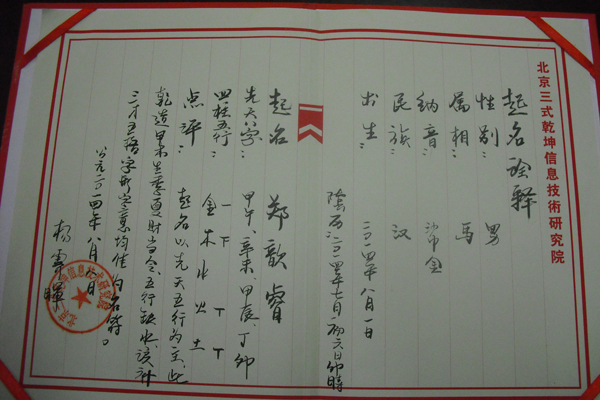 北京三式乾坤信息技術研究院
起名诠释
性别：男
属相：马
纳音：沙中金
民族：汉
出生：二〇一四年八月一日
陰历：二〇一四年七月初六日卯時
起名 郑歆睿
先天八字：甲午、辛未、甲辰、丁卯
四柱五行：金木水火土
点评：起名以先天五行为主，此
乾造甲木生季夏财当令，五行缺水，该补
三才五格字形字意均佳为名符。
公元二〇一四年八月六日